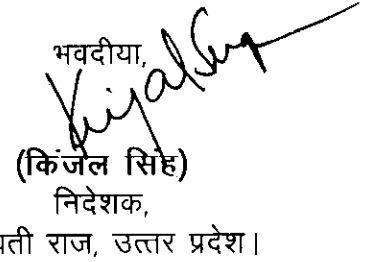 भवदीया,
(किंजल सिंह)
निदेशक,
यती राज, उत्तर प्रदेश।